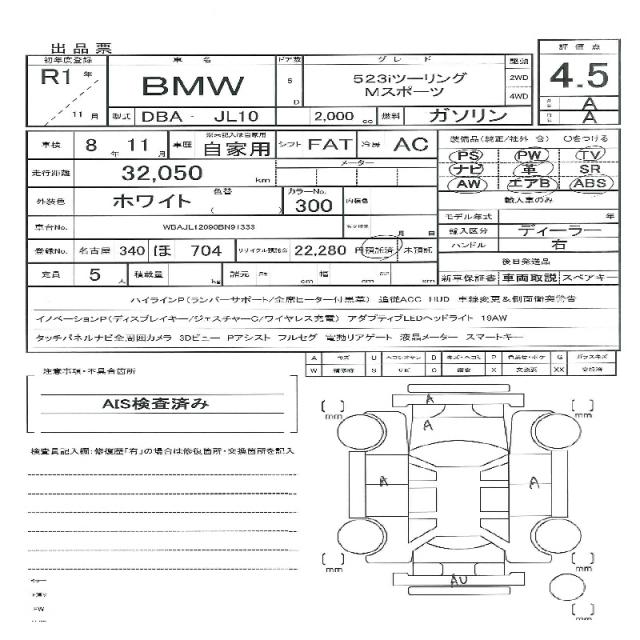 出品票
初年度登録 車名 ドア数 グレード 駆動 評価点
R1 年 11 月 BMW 5 D 523iツーリング Mスポーツ 2WD 4WD 4.5
A
A
型式 DBA - JL10 2,000 cc 燃料 ガソリン
車検 8 年 11 月 車歴 自家用 シフト FAT 冷房 AC
装備品(純正/社外 含) ○をつける
PS PW TV
ナビ 革 SR
AW エアB ABS
走行距離 32,050 km メーター
輸入車のみ
外装色 ホワイト 色替 ( ) カラーNo. 300 内装色
モデル年式 年
車台No. WBAJL12090BN91333 月 日
輸入区分 ディーラー
登録No. 名古屋 340 ほ 704 リサイクル預託金 22,280 円 預託済 未預託
ハンドル 右
後日発送品
定員 5 人 積載量 kg 諸元 長 cm 幅 cm 高 cm
新車保証書 車両取説 スペアキー
ハイラインP(ランバーサポート/全席ヒーター付黒革) 追従ACC HUD 車線変更&側面衝突警告
イノベーションP(ディスプレイキー/ジェスチャーC/ワイヤレス充電) アダプティブLEDヘッドライト 19AW
タッチパネルナビ全周囲カメラ 3Dビュー Pアシスト フルセグ 電動リアゲート 液晶メーター スマートキー
A キズ U ヘコミ D キズ・ヘコミ P G ガラスキズ
W 補修跡 S サビ C 腐食 X 交換要 XX 交換済
注意事項・不具合箇所
AIS検査済み
検査員記入欄:修復歴「有」の場合は修復箇所・交換箇所を記入
A
A
A
A
AU
mm
mm
mm
mm
mm